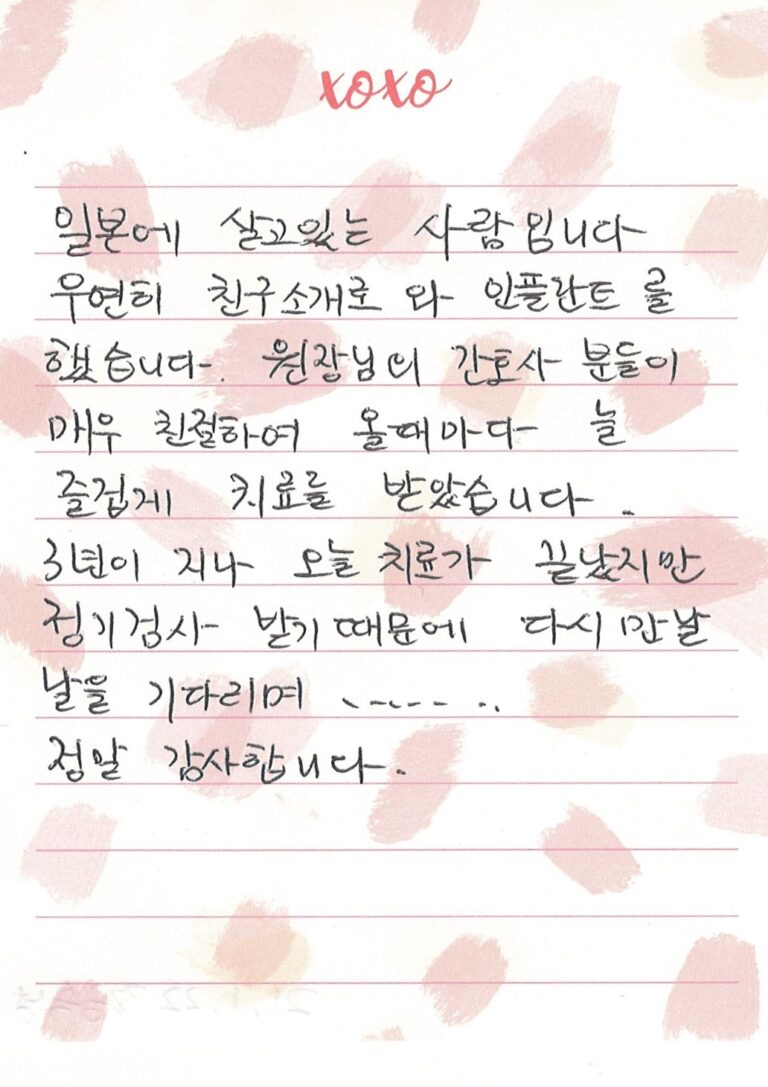 xoxo
일본에 살고있는 사람입니다
우연히 친구소개로 와 인플란트를
했습니다. 원장님의 간호사 분들이
매우 친절하여 올때마다 늘
즐겁게 치료를 받았습니다.
3년이 지나 오늘 치료가 끝났지만
정기검사 받기 때문에 다시 만날
날을 기다리며 ........
정말 감사합니다.